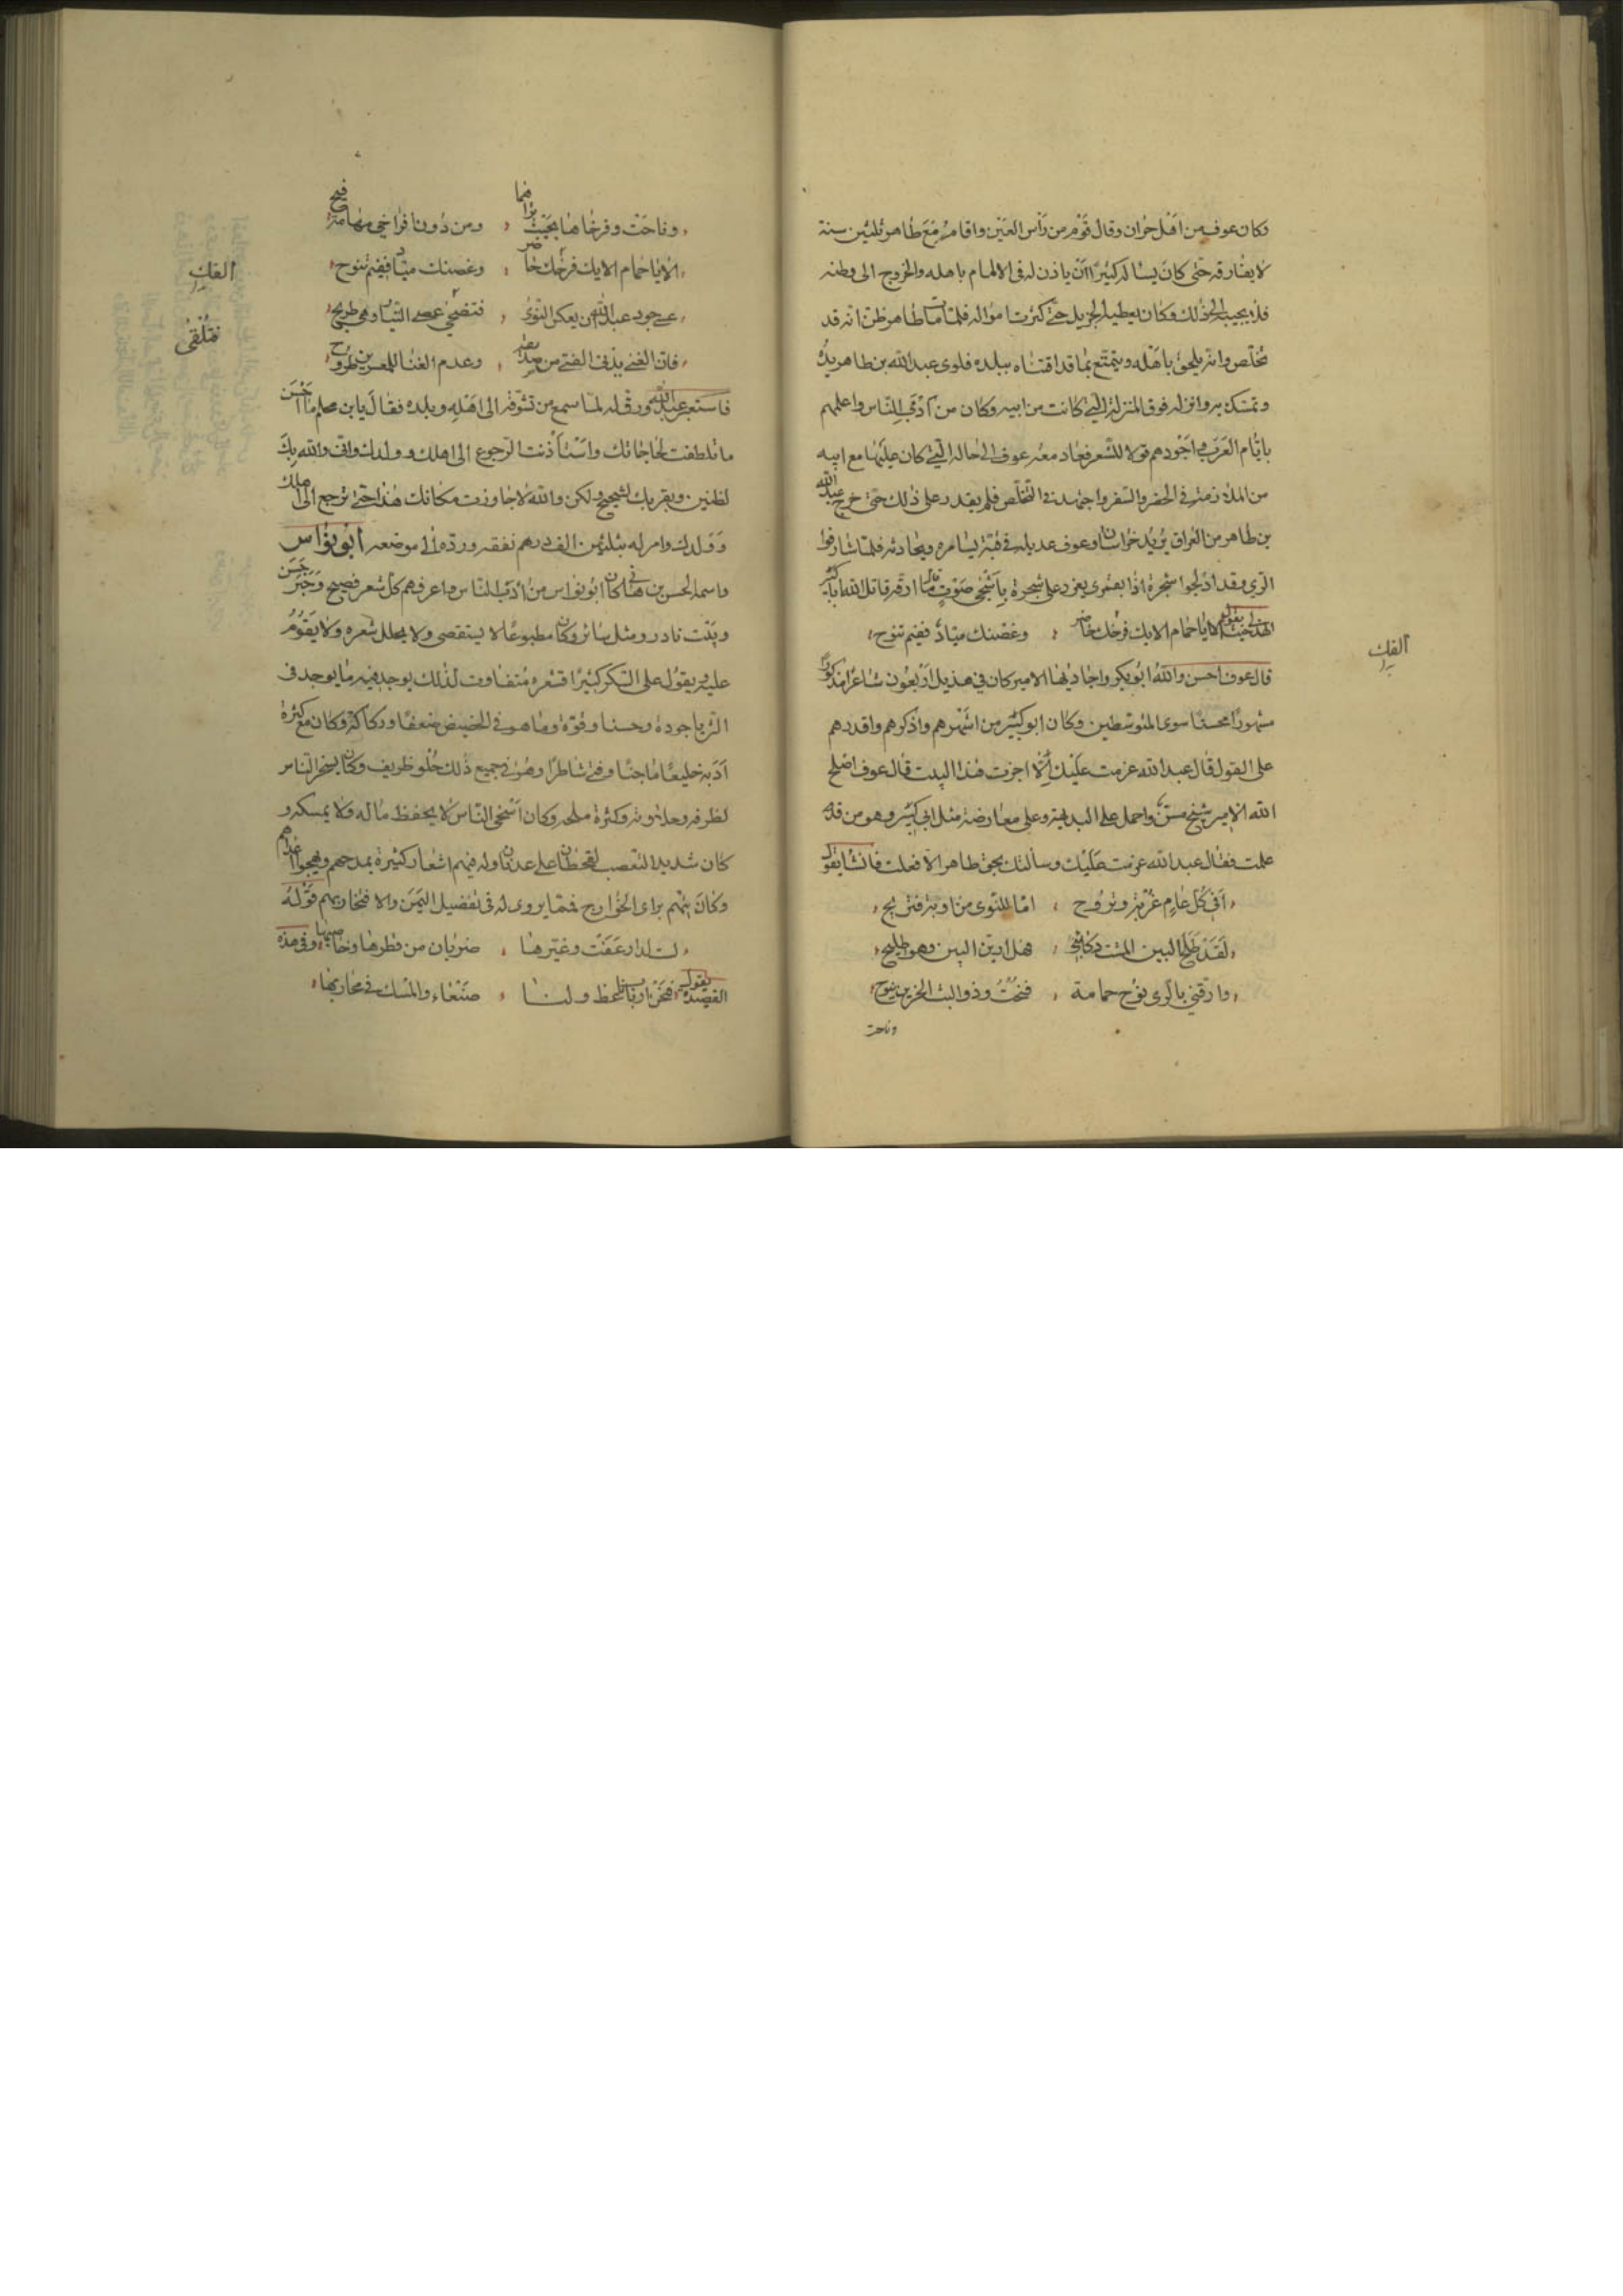 وكان عوف من اهل حران وقال قوم من رأس العين واقام مع طاهر ثلثين سنة
لا يفارقه حتى كان يساله كثيرا ان ياذن له فى الالمام باهله والخروج الى وطنه
فلا يجيبه الى ذلك وكان يعطيه الجزيل حتى كثرت امواله فلما مات طاهر ظن انه قد
تخلص وانه يلحق باهله ويتمتع بما قد اقتناه ببلده فلوى عبد الله بن طاهر يده
وتمسك به وانزله فوق المنزلة التى كانت من ابيه وكان من آدب الناس واعلمهم
بايام العرب واجودهم قولا للشعر فعاد معه عوف الى حاله التى كان عليها مع ابيه
من الملازمة فى الحضر والسفر واجتهد فى التخلص فلم يقدر على ذلك حتى خرج عبد الله
بن طاهر من العراق يريد خراسان وعوف عديله فى قبة يسامره ويحادثه فلما شارفوا
الرى وقد ادلجوا سحرة اذا بقمرى يغرد على شجرة باشجى صوت فقال قاتل الله ابا كبير
الهذلى حيث يقول الا يا حمام الايك فرخك حاضر ، وغصنك مياد ففيم تنوح
قال عوف احسن والله ابو كبير واجاد ايها الامير كان فى هذيل اربعون شاعرا مذكورا
مشهورا محسنا سوى المتوسطين وكان ابو كبير من اشهرهم واذكرهم واقدرهم
على القول قال عبد الله عزمت عليك الا اجزت هذا البيت قال عوف اصلح
الله الامير شيخ مسن واحمل على البديهة وعلى معارضة مثل ابى كبير وهو من قد
علمت فقال عبد الله عزمت عليك وسالتك بحق طاهر الا فعلت فانشا يقول
افى كل عام غربة ونزوح ، اما للنوى من اوبة فتريح
لقد طلح البين المشت ركائبى ، هل ارين البين وهو طليح
وارقنى بالرى نوح حمامة ، فنحت وذو البث الحزين ينوح
وناحت
الفك
وناحت وفرخاها بحيث تراهما ، ومن دون افراخى مهامه فيح
الا يا حمام الايك فرخك حاضر ، وغصنك مياد ففيم تنوح
عسى جود عبد الله ان يعكس النوى ، فتضحى عصى التسيار وهى طريح
فان الغنى يدنى الفتى من صديقه ، وعدم الغنا للمعسرين طروح
فاستعبر عبد الله ورق له لما سمع من تشوقه الى اهله وبلده فقال يا ابن محلم ما احسن
ما تلطفت لحاجاتك واستأذنت الرجوع الى اهلك وولدك وانى والله بك
لضنين وبقربك لشحيح ولكن والله لا جاوزت مكانك هذا حتى ترجع الى اهلك
وولدك وامر له بثلثين الف درهم نفقه ورده الى موضعه ابو نواس
واسمه الحسن بن هانى كان ابو نواس من آدب الناس واعرفهم كل شعر فصيح وخبر حسن
وبيت نادر ومثل سائر وكان مطبوعا لا يستقصى ولا يحلل شعره ولا يقوم
عليه ويقول على السكر كثيرا فشعره متفاوت لذلك يوجد فيه ما يوجد فى
الثريا جودة وحسنا وقوة وما هو فى الحضيض ضعفا وركاكة وكان مع كثرة
ادبه خليعا ماجنا وفتى شاطرا وهو فى جميع ذلك حلو ظريف وكان يسخر الناس
لظرفه وحلاوته وكثرة ملحه وكان اسخى الناس لا يحفظ ماله ولا يمسكه و
كان شديد التعصب لقحطان على عدنان وله فيهم اشعار كثيرة يمدحهم ويهجوا اعداءهم
وكان يتهم براى الخوارج فمما يروى له فى تفضيل اليمن والافتخار بهم قوله
لست لدار عفت وغيرها ، ضربان من قطرها وحاصبها وفى هذه
القصيدة يقول فنحن ارباب ناعط ولنا ، صنعاء والمسك فى محاربها
الفك
فتلقى